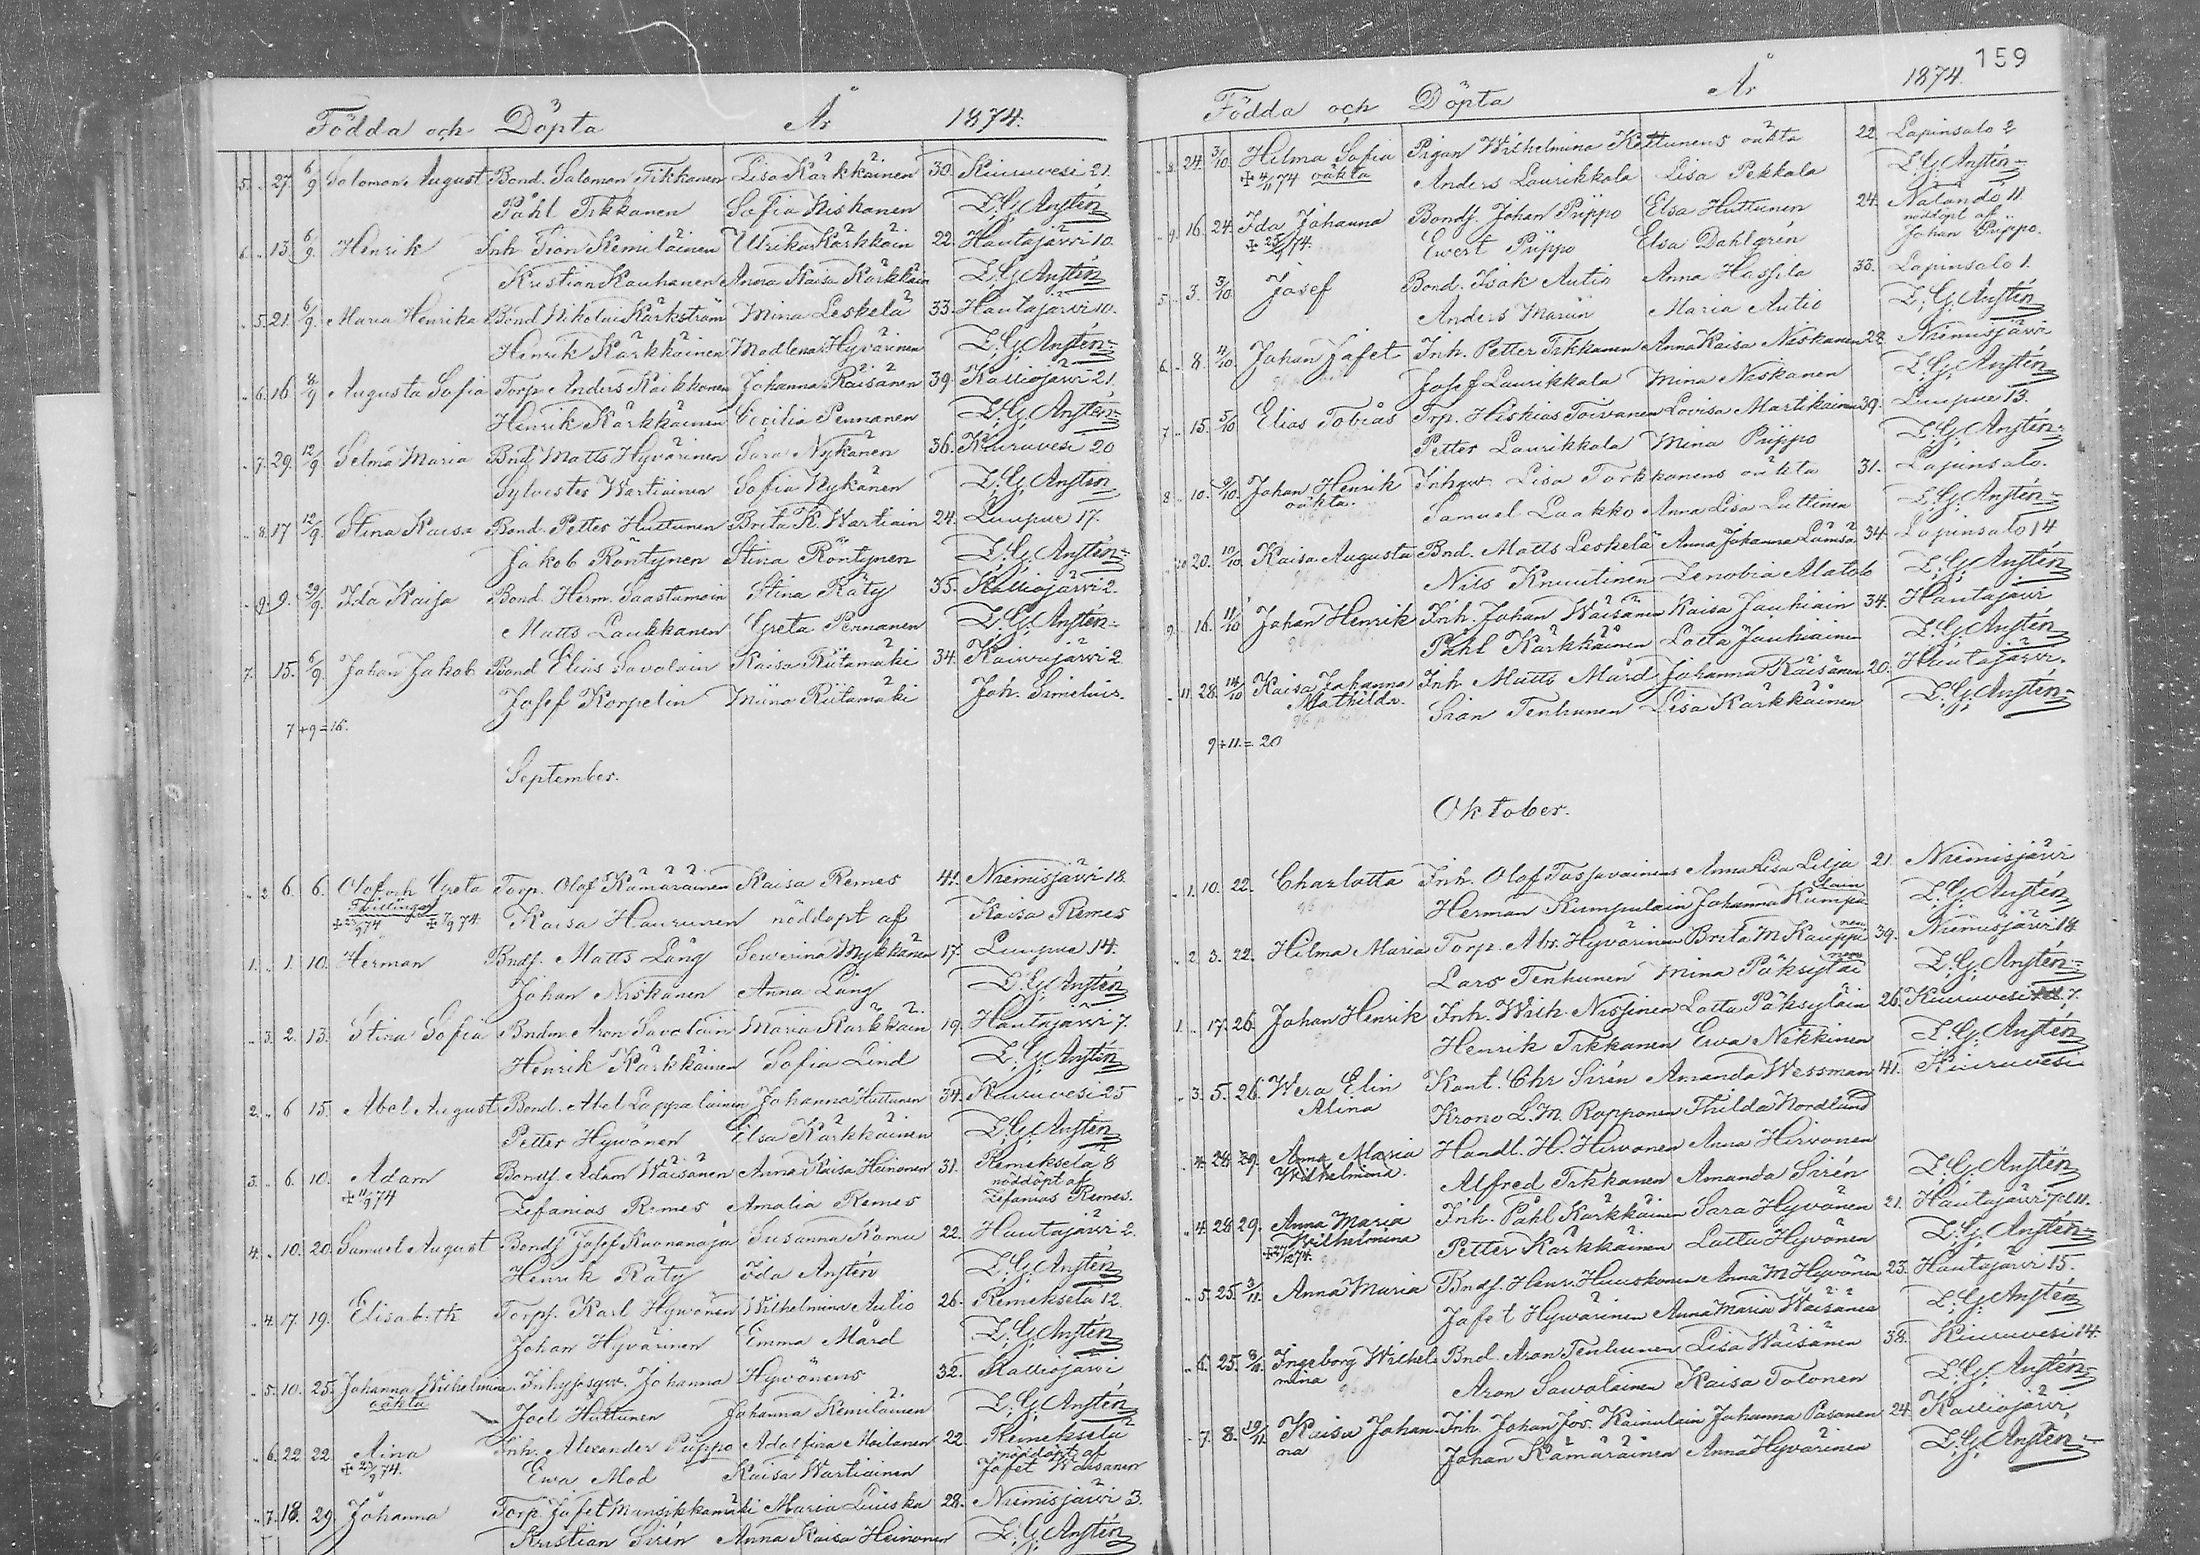 Födda och Döpta År 1874.
5. 27. 6/9 Salomon August Bond. Salomon Tikkanen Lisa Kärkkäinen 30. Kiuruvesi 21.
Påhl Tikkanen Sofia Niskanen L. G. Anstén
6. 13. 6/9 Henrik Inh. Kemiläinen Ulrika Kärkkäin 22. Hautajärvi 10.
Kristian Kauhanen Anna Kaisa Kärkkäin L. G. Anstén
5. 21. 6/9. Maria Henrika Bond Nikolai Karkström Mina Leskelä 33. Hautajärvi 10.
Henrik Kärkkäinen Madlena Hyvärinen L. G. Anstén
6. 16. Augusta Sofia Torp. Anders Kaikkonen Johanna Räisänen 39. Kalliojärvi 21.
Henrik Kärkkäinen Cecilia Pennanen L. G. Anstén
7. 29. 12/9 Selma Maria Bnd. Matts Hyvärinen Sara Nykänen 36. Kiuruvesi 20
Sylvester Wartiainen Sofia Nykänen L. G. Anstén
8. 17 12/9. Stina Kaisa Bond. Petter Huttunen Brita K. Wartiain 24. Luupue 17.
Jakob Röntynen Stina Röntynen L. G. Anstén
9. 9. 29/9. Ida Kaisa Bond. Herm. Saastamoin Stina Räty 35. Kalliojärvi 2.
Matts Laukkanen Greta Pennanen L. G. Anstén
7. 15. 6/9. Johan Jakob Bond Elias Savolain Kaisa Riitamäki 34. Kaivujärvi 2
Josef Korpelin Miina Riitamäki Joh. Simelius.
7+9=16.
September.
2 6. 6. Olof och Greta Torp. Olof Kämäräinen Kaisa Remes 41. Niemisjärvi 18.
Tvillingar 74 7/9 74. Kaisa Haurunen nöddöpt af Kaisa Remes
1. 1. 10. Herman Bndf. Matts Lång Sewerina Mykkänen 17. Luupue 14.
Johan Niskanen Anna Lång L. G. Anstén
3. 2. 13. Stina Sofia Bndm Aron Savolain Maria Kärkkäin 19. Hautajärvi 7.
Henrik Kärkkäinen Sofia Lind L. G. Anstén
2. 6 15. Abel August Bond. Abel Lappalainen Johanna Huttunen 34. Kiuruvesi 25
Petter Hyvönen Elsa Kärkkäinen L. G. Anstén
3. 6. 10. Adam Bondf. Adam Wäisänen Anna Kaisa Heinonen 31. Remekselä 8
11/9 74 Zefanias Remes Amalia Remes nöddöpt af Zefanias Remes.
4. 10. 20. Samuel August Bondf Josef Kuananoja Susanna Kämä 22. Hautajärvi 2.
Henrik Räty Ida Anstén L. G. Anstén
4. 17. 19. Elisabeth Torpf. Karl Hyvönen Wilhelmina Autio 26. Remekselä 12.
Johan Hyvärinen Emma Mård L. G. Anstén
5. 10. 25. Johanna Wilhelmina Johanna Hyvönens 32. Kalliojärvi
oäkta Joel Huttunen Johanna Kemiläinen L. G. Anstén
6. 22 22 Aina Inh. Alexander Piippo Adolfina Moilanen 22. Remekselä
74. Ewa Mod Kaisa Wartiainen nöddöpt af Jafet Waisanen
7. 18. 29. Johanna Torp. Jafet Mansikkamäki Maria Luiska 28. Niemisjärvi 3.
Kristian Sirén Anna Kaisa Heinonen L. G. Anstén
159
Födda och Döpta År 1874.
8. 24. 3/10 Hilma Sofia Pigan Wilhelmina Kettunens oäkta 22. Lapinsalo 2
4/11 74 oäkta Anders Laurikkala Lisa Pekkala L. G. Anstén
9. 16. 24. Ida Johanna Bondf. Johan Piippo Elsa Huttunen 24. 11.
74. Ewert Piippo Elsa Dahlgrén nöddöpt af Johan Piippo.
5. 3. 3/10 Josef Bond. Isak Autio Anna Hassila 33. Lapinsalo 1.
Anders Mariin Maria Autio L. G. Anstén
6. 8 4/10 Johan Jafet Inh. Petter Tikkanen Anna Kaisa Niskanen 28. Niemisjärvi
Josef Laurikkala Mina Niskanen L. G. Anstén
7. 15. 5/10 Elias Tobias Trp. Hiskias Toivanen Lovisa Martikainen 39. Luupue 13.
Petter Laurikkala Mina Piippo L. G. Anstén
8. 10. 9/10. Johan Henrik Inhqv. Lisa Torkkanens oäkta 31. Lapinsalo.
oäkta. Samuel Laakko Anna Lisa Luttinen L. G. Anstén
10 20. 10/10. Kaisa Augusta Bnd. Matts Leskelä Anna Johanna Lämsä 34. Lapinsalo 14
Nils Knuutinen Zenobia Alatalo L. G. Anstén
9. 16. 11/10 Johan Henrik Inh. Johan Wäisänen Kaisa Jauhiain 34. Hautajärvi
Påhl Kärkkäinen Lotta Jauhiainen L. G. Anstén
11. 28. 14/10 Kaisa Johanna Inh. Matts Mård Johanna Räisänen 20. Hautajärvi.
Mathilda. Tenhunen Lisa Kärkkäinen L. G. Anstén
9+11.=20
Oktober.
1. 10. 22. Charlotta Inh. Olof Tossavainens Anna Lisa Lilja 21. Niemisjärvi
Herman Kumpulain Johanna Kumpulain L. G. Anstén
2. 3. 22. Hilma Maria Torp. Abr. Hyvärinen Brita M Kauppinen 39. Niemisjärvi 18.
Lars Tenhunen Mina Päksyläinen L. G. Anstén
1. 17. 26. Johan Henrik Inh. Wilh. Nissinen Lotta Päksyläin 26. Kiuruvesi 7.
Henrik Tikkanen Ewa Nikkinen L. G. Anstén
3. 5. 26. Wera Elin Kant. Chr Sirén Amanda Wessman 41. Kiuruvesi
Alina Krono L. M. Ropponen Thilda Nordlund
4. 28 29. Anna Maria Handl. H. Hirvonen Anna Hirvonen
Wilhelmina. Alfred Tikkanen Amanda Sirén L. G. Anstén
4. 28 29. Anna Maria Inh. Påhl Kärkkäinen Sara Hyvönen 21. Hautajärvi 7 11.
Wilhelmina Petter Kärkkäinen Lotta Hyvönen L. G. Anstén
5. 25. 3/11. Anna Maria Bndf. Henr. Huuskonen Anna M Hyvönen 23. Hautajärvi 15.
Jafet Hyvärinen Anna Maria Wäisänen L. G. Anstén
6. 25. Ingeborg Wilhel Bnd. Aron Tenhunen Lisa Wäisänen 38. Kiuruvesi 14.
mina Aron Sawolainen Kaisa Tolonen L. G. Anstén
7. 8. Kaisa Johan Inh. Johan Jos. Kainulain Johanna Pasanen 24. Kalliojärvi
na Johan Kämäräinen Anna Hyvärinen L. G. Anstén